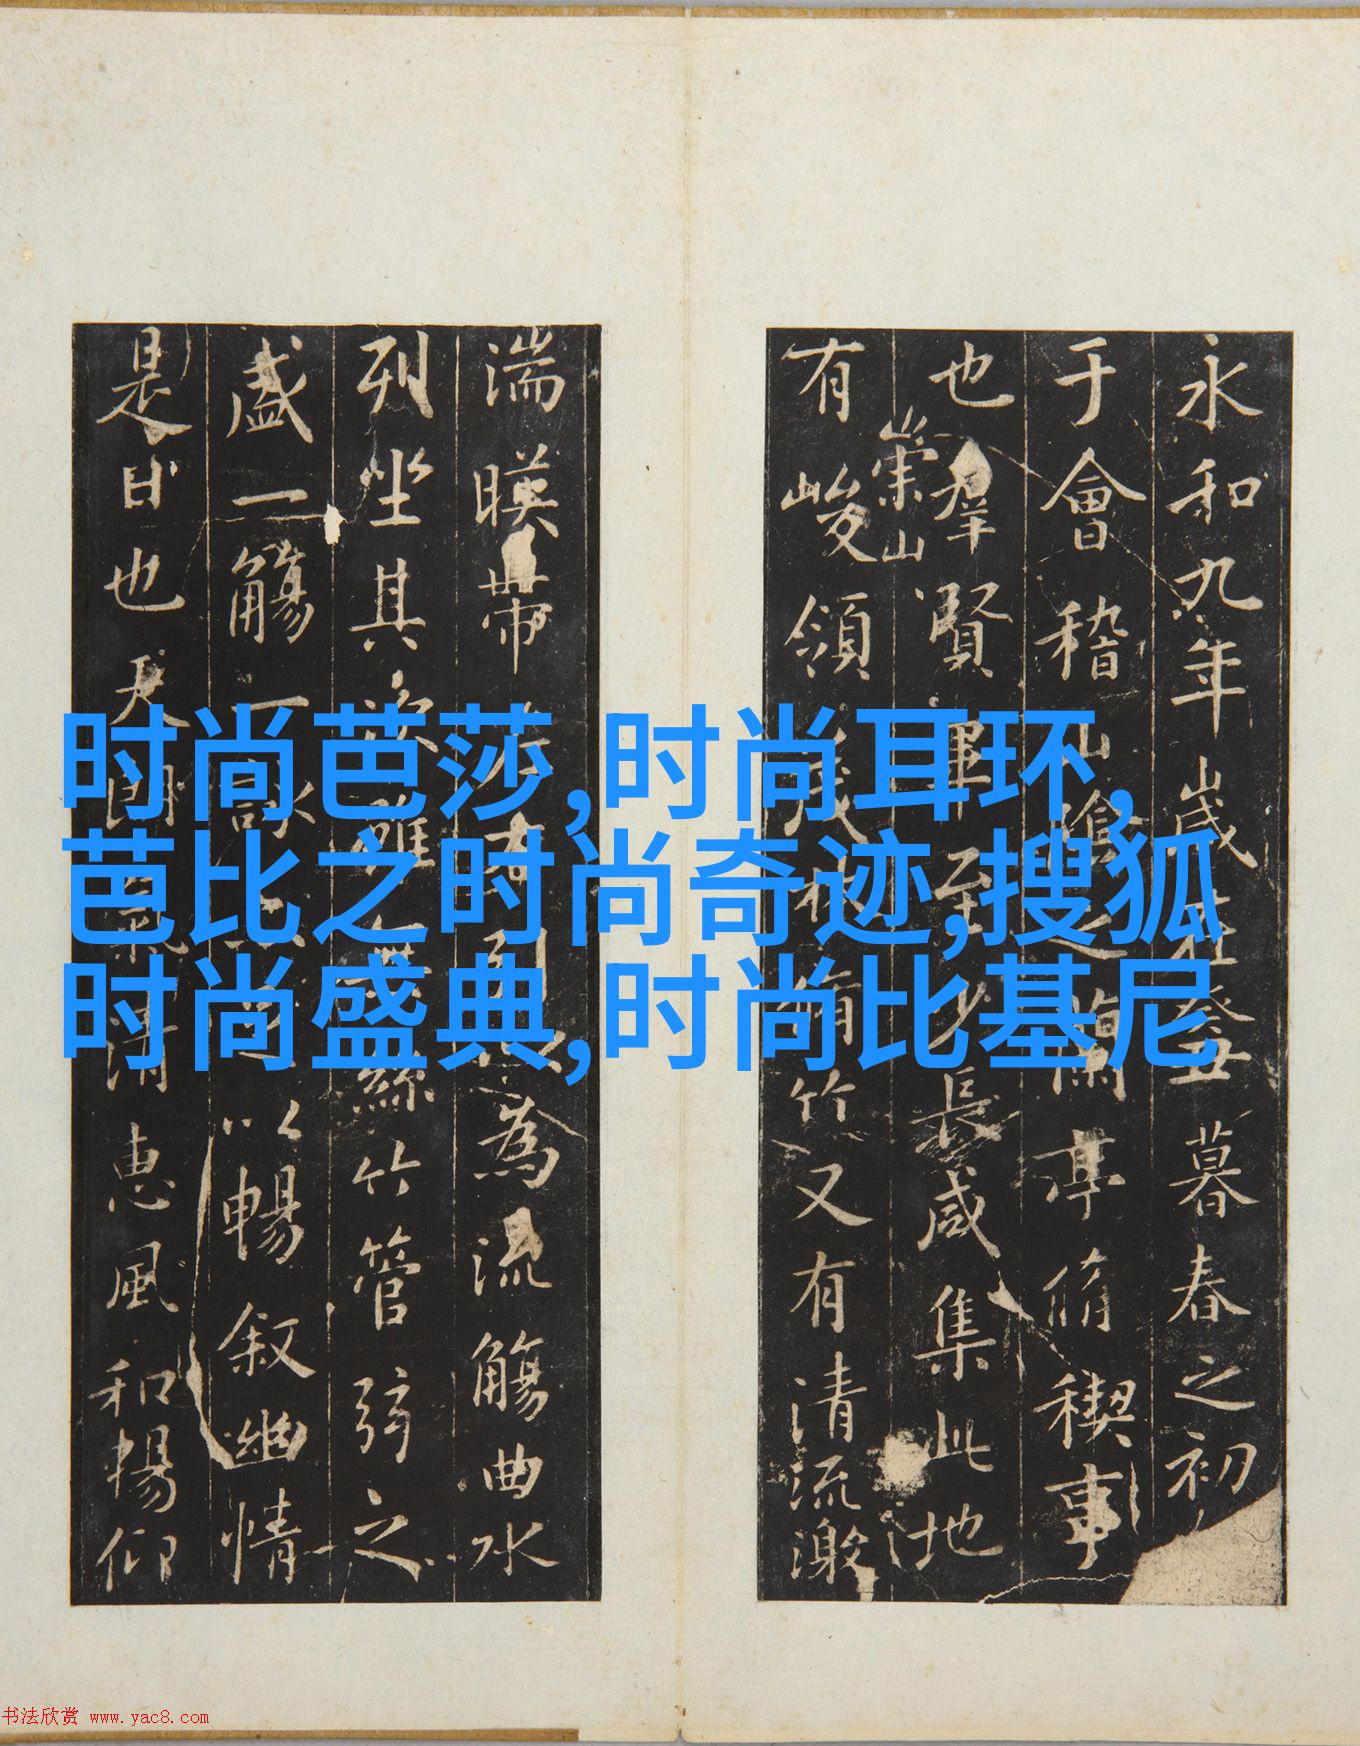 永和九年歲在癸丑暮春之初
于會稽山陰之蘭亭脩稧事
也羣賢畢至少長咸集此地
崇山
有峻領茂林脩竹又有清流激
湍暎帶左右引以為流觴曲水
列坐其次雖無絲竹管弦之
盛一觴一詠亦足以暢叙幽情
是日也天朗氣清惠風和暢仰
时尚芭莎,时尚耳环,
芭比之时尚奇迹,搜狐
时尚盛典,时尚比基尼
书法欣赏 www.yac8.com